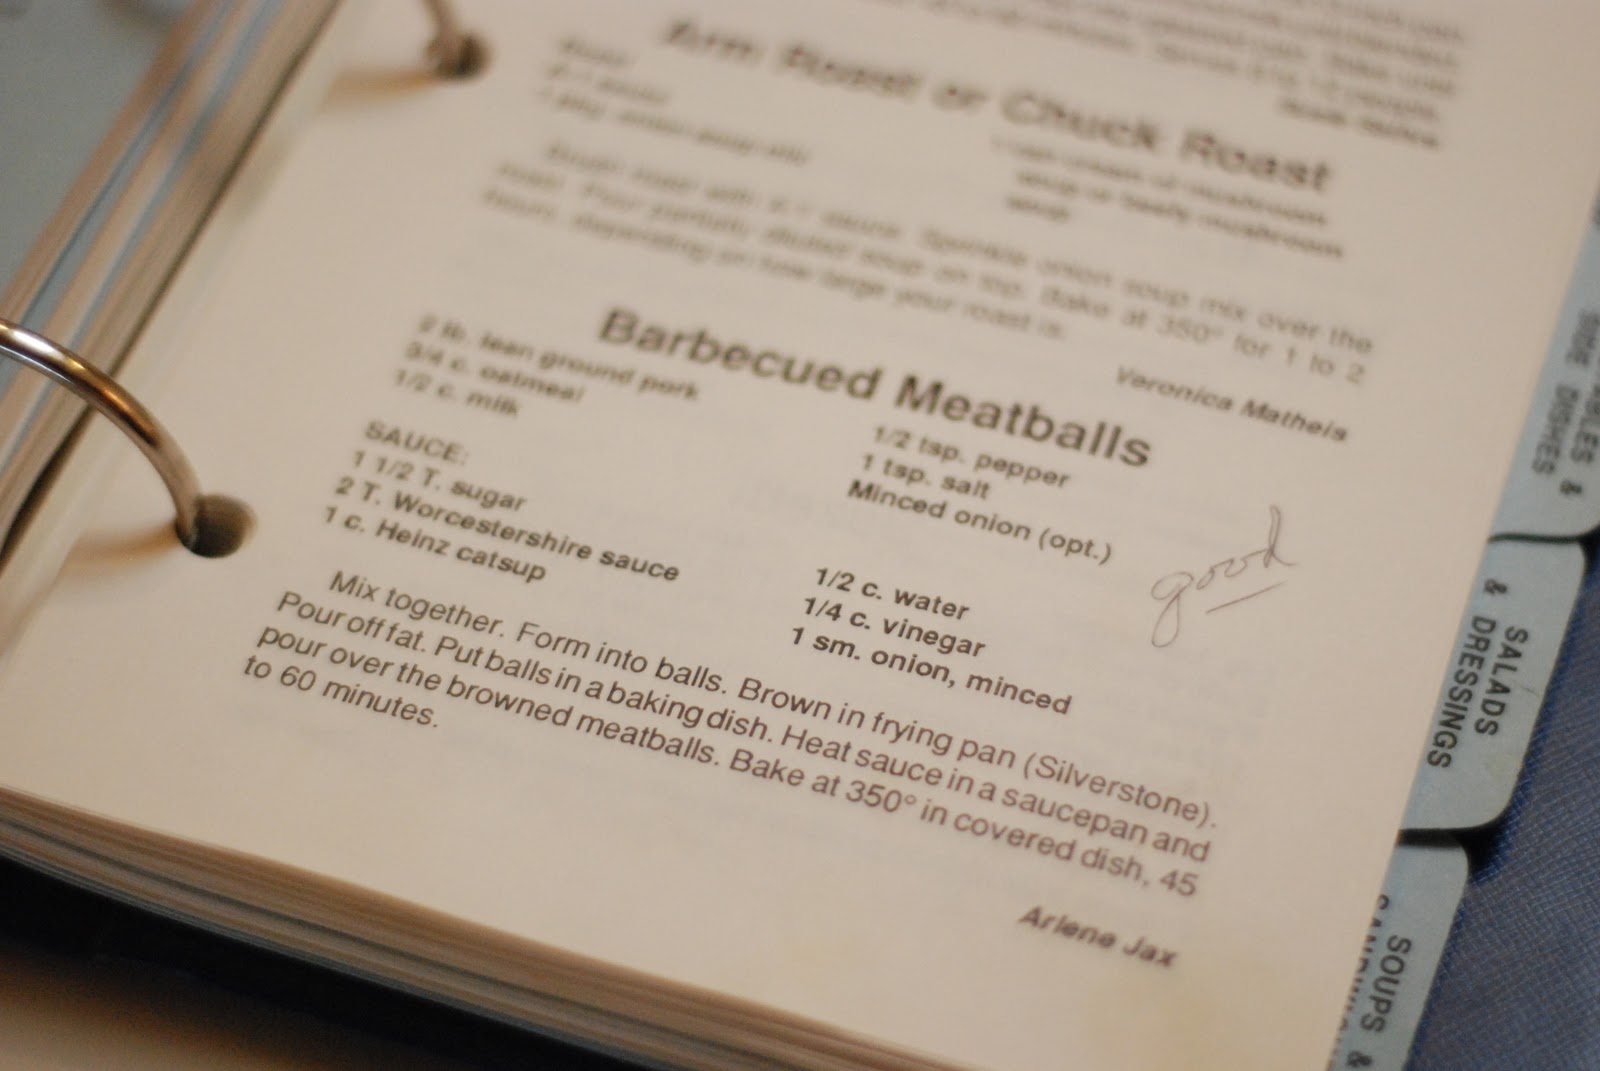 Arm Roast or Chuck Roast
1 can cream of mushroom
soup or beefy mushroom
soup
Sprinkle onion soup mix over the
roast. Pour partially diluted soup on top. Bake at 350° for 1 to 2
hours, depending on how large your roast is.
Veronica Matheis
Barbecued Meatballs
2 lb. lean ground pork
3/4 c. oatmeal
1/2 c. milk
1/2 tsp. pepper
1 tsp. salt
Minced onion (opt.)
SAUCE:
1 1/2 T. sugar
2 T. Worcestershire sauce
1 c. Heinz catsup
1/2 c. water
1/4 c. vinegar
1 sm. onion, minced
good
Mix together. Form into balls. Brown in frying pan (Silverstone).
Pour off fat. Put balls in a baking dish. Heat sauce in a saucepan and
pour over the browned meatballs. Bake at 350° in covered dish, 45
to 60 minutes.
Arlene Jax
& 
SIDE DISHES
SALADS
& DRESSINGS
SOUPS &